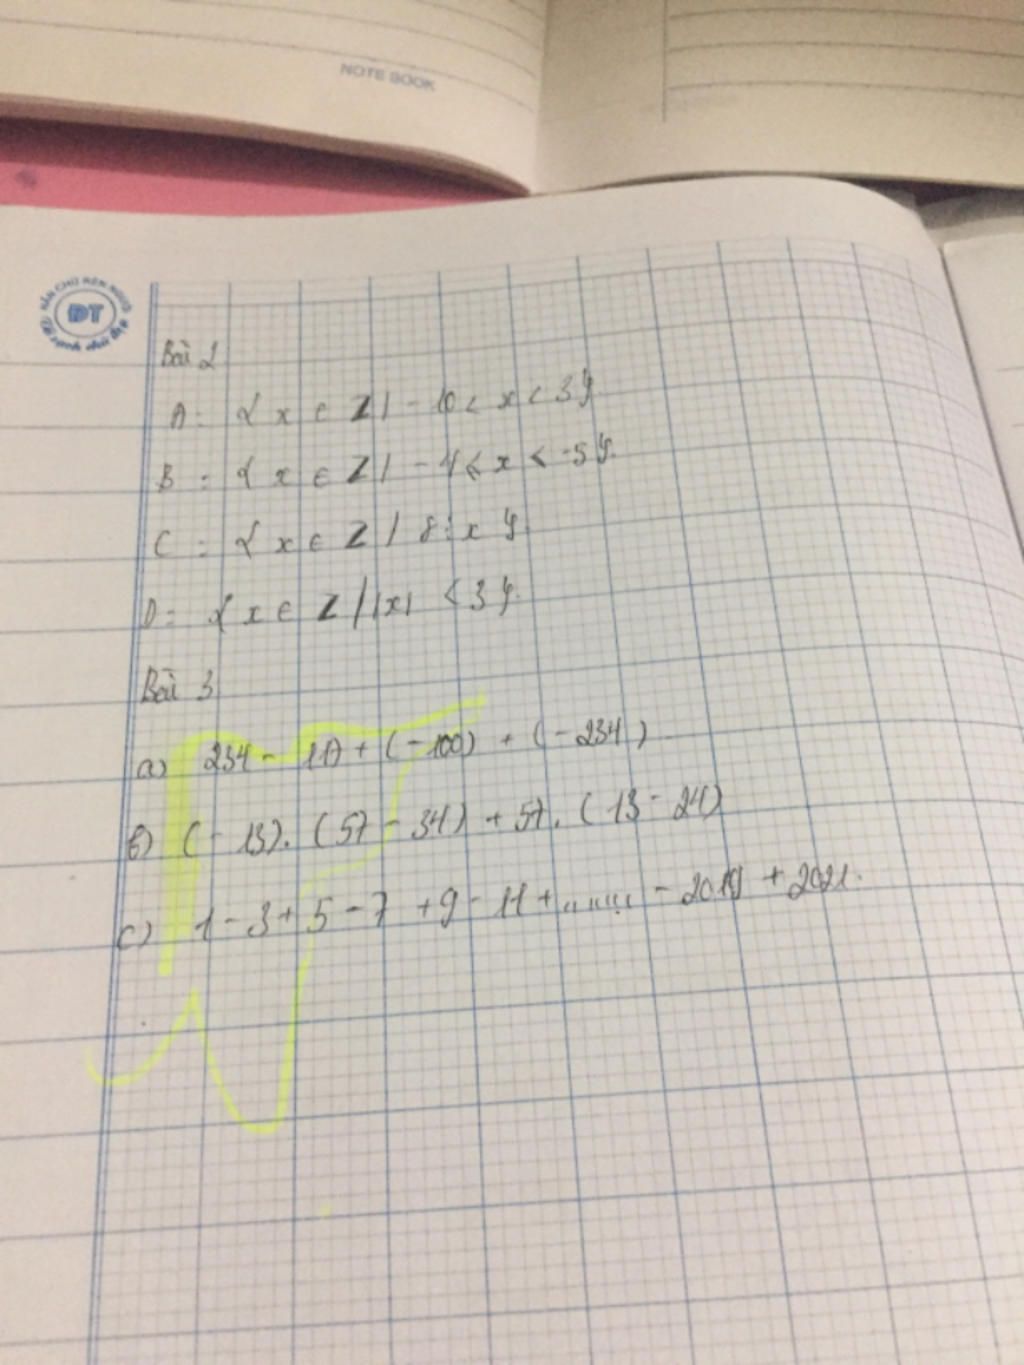 NOTE BOOK
ĐT
Bài 2
A = { x ∈ Z | - 10 < x < 3 }
B = { x ∈ Z | - 4 ≤ x < -5 }.
C = { x ∈ Z | 8 ⋮ x }
D = { x ∈ Z | |x| < 3 }.
Bài 3
a) 234 - 117 + (-100) + (-234)
b) (- 13). (57 - 34) + 57. (13 - 24)
c) 1 - 3 + 5 - 7 + 9 - 11 + ....... - 2019 + 2021.